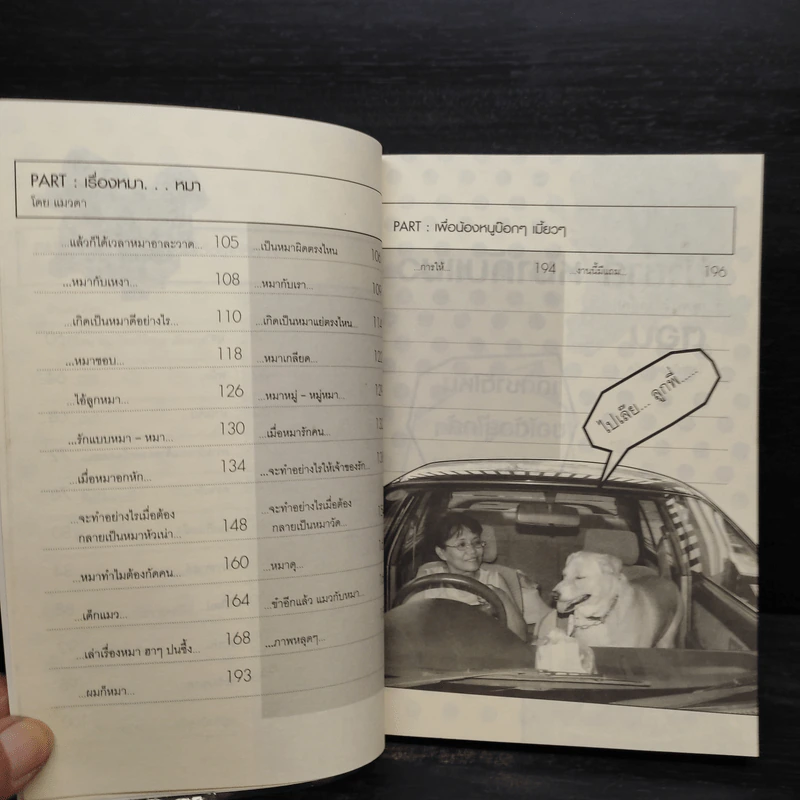 PART : เรื่องหมา. . . หมา
โดย แมวดำ
...แล้วก็ได้เวลาหมาอาละวาด... 105
...หมากับเหงา... 108
...เกิดเป็นหมาดีอย่างไร... 110
...หมาชอบ... 118
...ไอ้ลูกหมา... 126
...รักแบบหมา – หมา... 130
...เมื่อหมาอกหัก... 134
...จะทำอย่างไรเมื่อต้อง
กลายเป็นหมาหัวเน่า... 148
...หมาทำไมต้องกัดคน... 160
...เด็กแมว... 164
...เล่าเรื่องหมา ฮาๆ ปนซึ้ง... 168
...ผมก็หมา... 193
...เป็นหมาผิดตรงไหน 106
...หมากับเรา... 109
...เกิดเป็นหมาแย่ตรงไหน... 114
...หมาเกลียด...
...หมาหมู่ – หมู่หมา...
...เมื่อหมารักคน...
...จะทำอย่างไรให้เจ้าของรัก...
...จะทำอย่างไรเมื่อต้อง
กลายเป็นหมาวัด...
...หมาดุ...
...ขำอีกแล้ว แมวกับหมา...
...ภาพหลุดๆ...
PART : เพื่อน้องหนูบ๊อกๆ เมี้ยวๆ
...การให้... 194 ...งานนี้มีแถม... 196
ไปเลีย... ลูกพี่.....